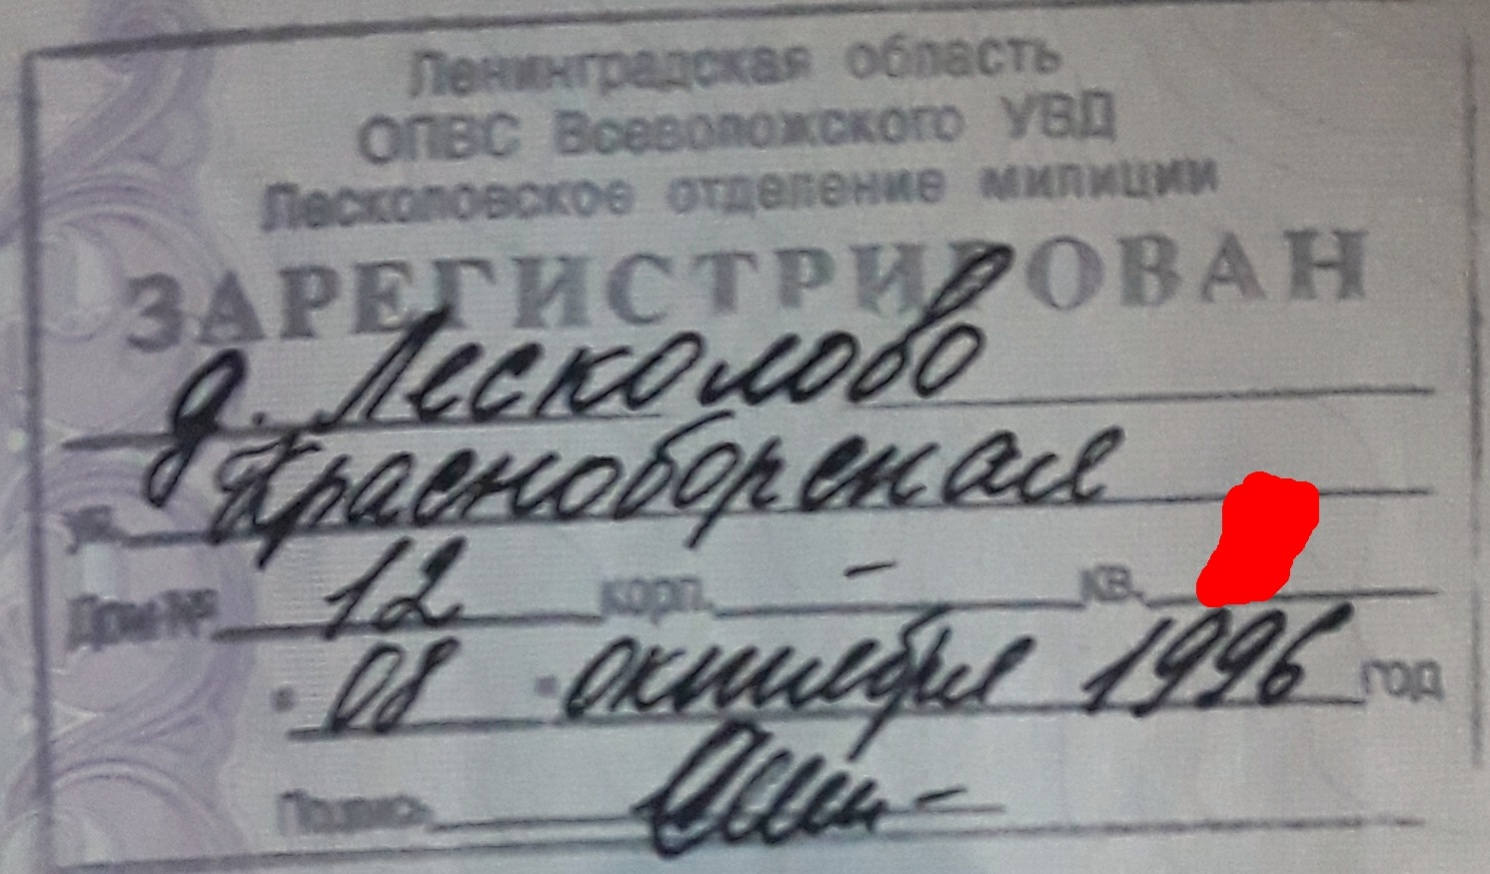 Ленинградская область
ОПВС Всеволожского УВД
Лесколовское отделение милиции
ЗАРЕГИСТРИРОВАН
д. Лесколово
ул. Красноборская
Дом № 12 корп. – кв.
"08" октября 1996 год
Подпись